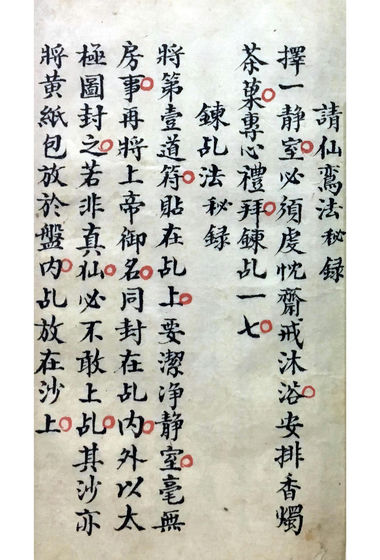 請仙鸞法秘録
擇一静室必須虔忱齋戒沐浴安排香燭
茶菓專心禮拜鍊乩一七
鍊乩法秘録
將第壹道符貼在乩上要潔净静室毫無
房事再將上帝御名同封在乩内外以太
極圖封之若非真仙必不敢上乩其沙亦
將黄紙包放於盤内乩放在沙上